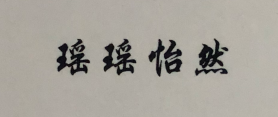 瑶瑶怡然